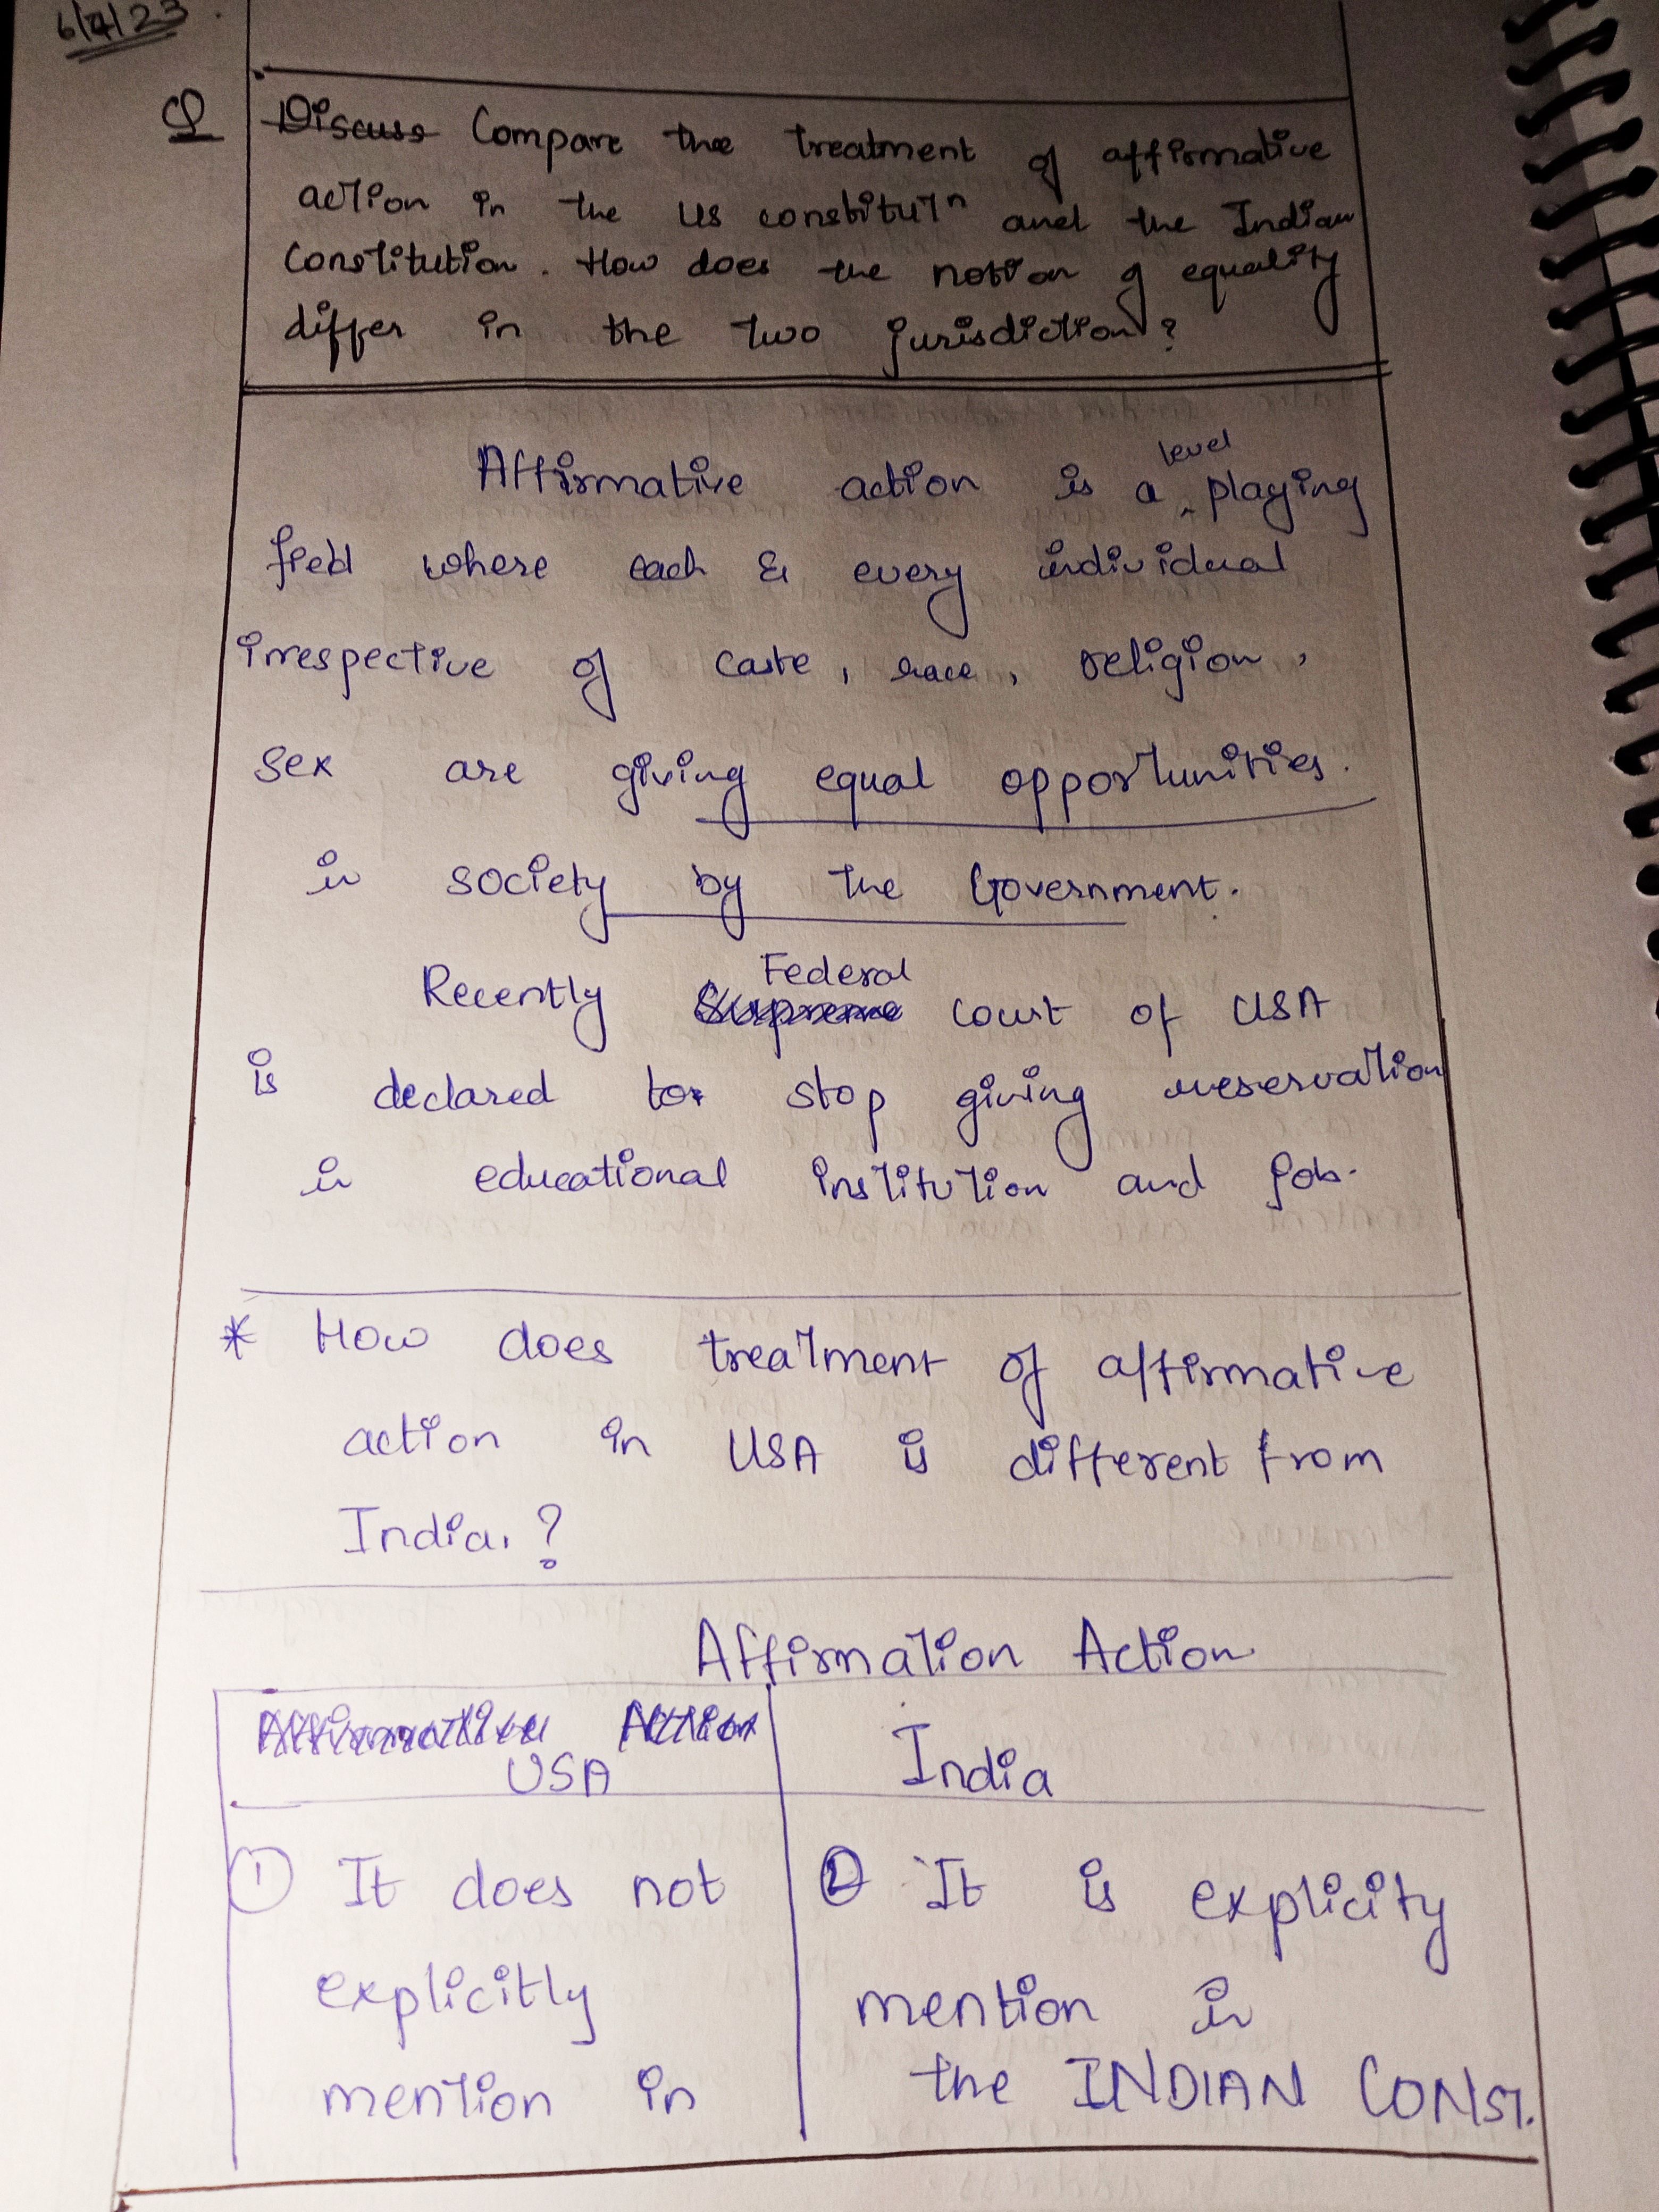 6/7/23
Q Discuss Compare the treatment of affirmative
action in the US constitutn and the Indian
Constitution. How does the notion of equality
differ in the two jurisdiction?
level
Affirmative action is a ^ playing
field where each & every individual
irrespective of caste, race, religion,
sex are giving equal opportunities.
in society by the Government.
Federal
Recently Supreme court of USA
is declared to stop giving reservation
in educational institution and job.
* How does treatment of affirmative
action in USA is different from
India.?
Affirmation Action
Affirmative Action
USA
India
① It does not
explicitly
mention in
② It is explicity
mention in
the INDIAN CONST.